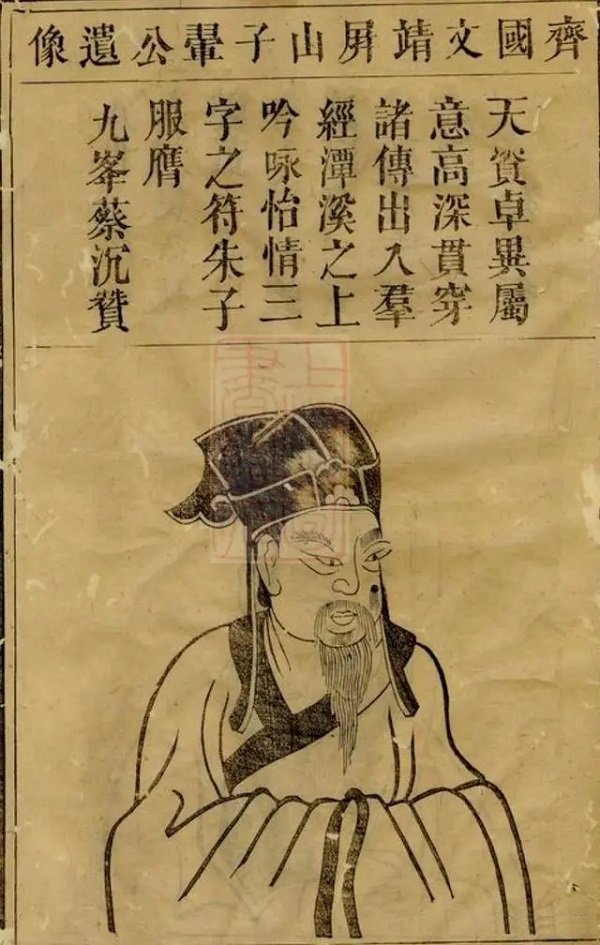 齊國文靖屏山子翬公遺像
天資卓異屬
意高深貫穿
諸傳出入羣
經潭溪之上
吟咏怡情三
字之符朱子
服膺
九峯蔡沉贊